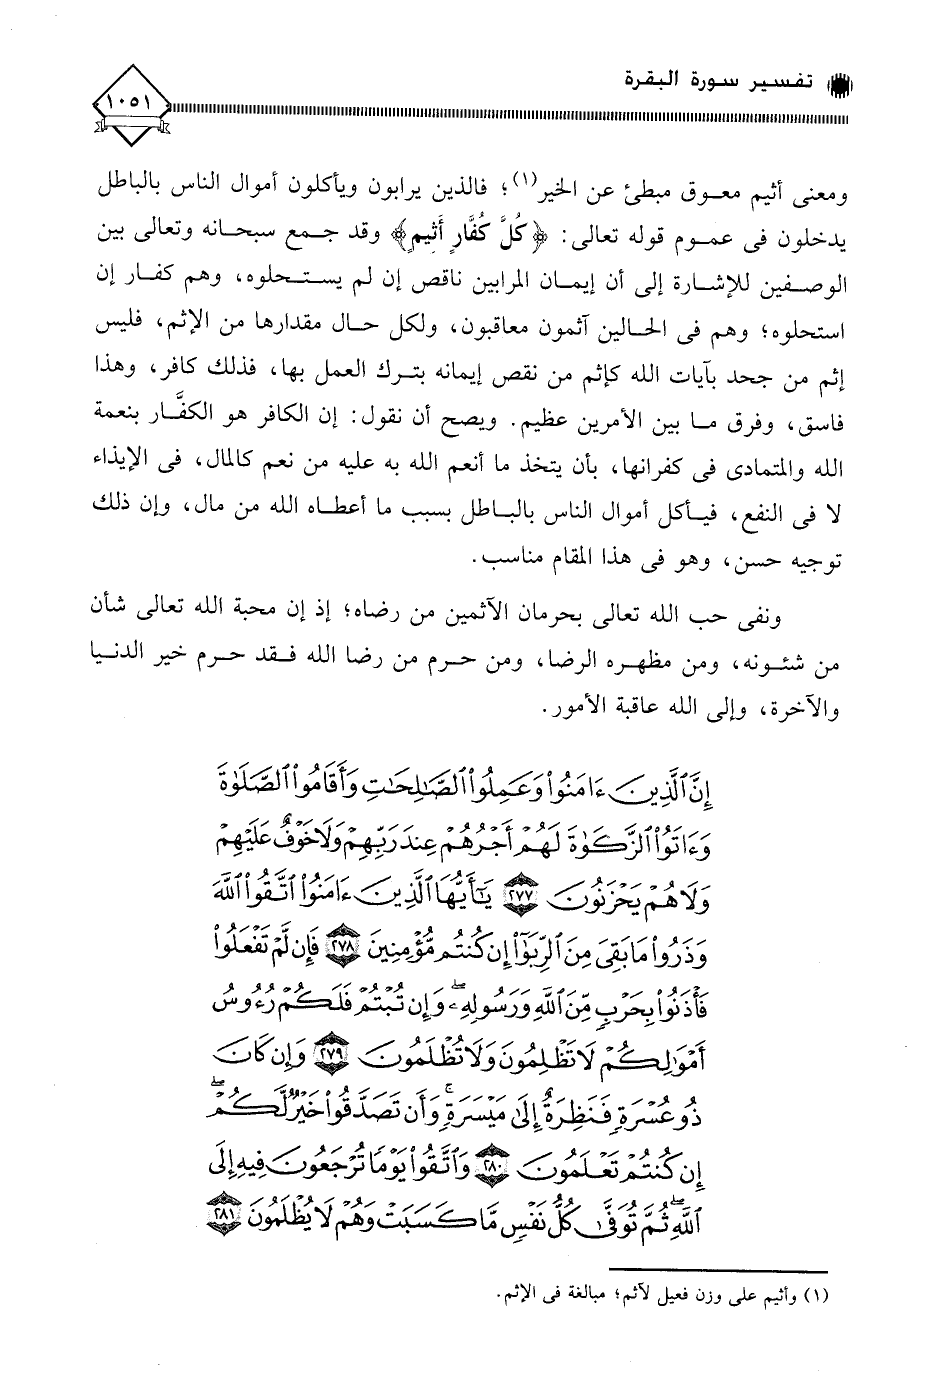 تفسير سورة البقرة
١٠٥١
ومعنى أثيم معوق مبطئ عن الخير(١)؛ فالذين يرابون ويأكلون أموال الناس بالباطل
يدخلون فى عموم قوله تعالى: ﴿كُلَّ كَفَّارٍ أَثِيمٍ﴾ وقد جمع سبحانه وتعالى بين
الوصفين للإشارة إلى أن إيمان المرابين ناقص إن لم يستحلوه، وهم كفار إن
استحلوه؛ وهم فى الحالين آثمون معاقبون، ولكل حال مقدارها من الإثم، فليس
إثم من جحد بآيات الله كإثم من نقص إيمانه بترك العمل بها، فذلك كافر، وهذا
فاسق، وفرق ما بين الأمرين عظيم. ويصح أن نقول: إن الكافر هو الكفَّار بنعمة
الله والمتمادى فى كفرانها، بأن يتخذ ما أنعم الله به عليه من نعم كالمال، فى الإيذاء
لا فى النفع، فيأكل أموال الناس بالباطل بسبب ما أعطاه الله من مال، وإن ذلك
توجيه حسن، وهو فى هذا المقام مناسب.
ونفى حب الله تعالى بحرمان الآثمين من رضاه؛ إذ إن محبة الله تعالى شأن
من شئونه، ومن مظهره الرضا، ومن حرم من رضا الله فقد حرم خير الدنيا
والآخرة، وإلى الله عاقبة الأمور.
إِنَّ ٱلَّذِينَ ءَامَنُوا۟ وَعَمِلُوا۟ ٱلصَّـٰلِحَـٰتِ وَأَقَامُوا۟ ٱلصَّلَوٰةَ
وَءَاتَوُا۟ ٱلزَّكَوٰةَ لَهُمْ أَجْرُهُمْ عِندَ رَبِّهِمْ وَلَا خَوْفٌ عَلَيْهِمْ
وَلَا هُمْ يَحْزَنُونَ ٢٧٧ يَـٰٓأَيُّهَا ٱلَّذِينَ ءَامَنُوا۟ ٱتَّقُوا۟ ٱللَّهَ
وَذَرُوا۟ مَا بَقِىَ مِنَ ٱلرِّبَوٰٓا۟ إِن كُنتُم مُّؤْمِنِينَ ٢٧٨ فَإِن لَّمْ تَفْعَلُوا۟
فَأْذَنُوا۟ بِحَرْبٍ مِّنَ ٱللَّهِ وَرَسُولِهِۦ ۖ وَإِن تُبْتُمْ فَلَكُمْ رُءُوسُ
أَمْوَٰلِكُمْ لَا تَظْلِمُونَ وَلَا تُظْلَمُونَ ٢٧٩ وَإِن كَانَ
ذُو عُسْرَةٍ فَنَظِرَةٌ إِلَىٰ مَيْسَرَةٍ ۚ وَأَن تَصَدَّقُوا۟ خَيْرٌ لَّكُمْ ۖ
إِن كُنتُمْ تَعْلَمُونَ ٢٨٠ وَٱتَّقُوا۟ يَوْمًا تُرْجَعُونَ فِيهِ إِلَى
ٱللَّهِ ۖ ثُمَّ تُوَفَّىٰ كُلُّ نَفْسٍ مَّا كَسَبَتْ وَهُمْ لَا يُظْلَمُونَ ٢٨١
(١) وأثيم على وزن فعيل لآثم؛ مبالغة فى الإثم.